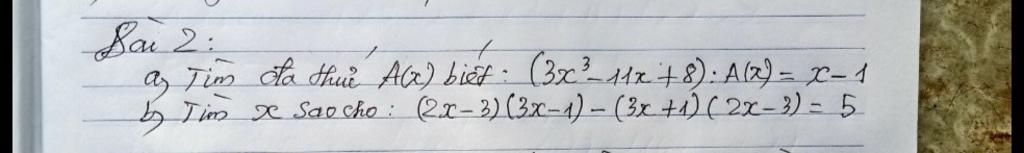 Bài 2:
a) Tìm đa thức A(x) biết : (3x³ - 11x + 8) : A(x) = x - 1
b) Tìm x sao cho : (2x - 3)(3x - 1) - (3x + 1)(2x - 3) = 5